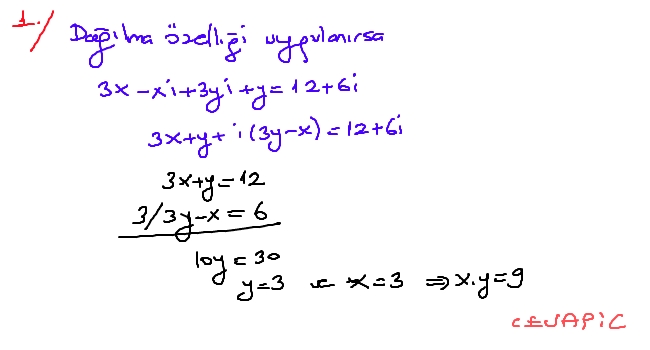 1./ Dağılma özelliği uygulanırsa
3x-xi+3yi+y=12+6i
3x+y+i(3y-x)=12+6i
3x+y=12
3/3y-x=6
10y=30
y=3 ve x=3 ⇒x.y=9
CEVAP:C